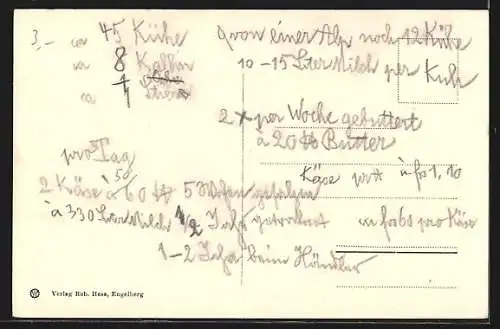 3.-
ca 45 Kühe
ca 8 Kalbin
ca 1 Stier
pro Tag
50/
2 Käse à 60 ℔ 5 Wochen gesalzen
à 330 Liter Milch 1/2 Jahr getrocknet
1-2 Jahr beim Händler
von einer Alp noch 12 Kühe
10-15 Liter Milch per Kuh
2 x per Woche gebuttert
à 20 ℔ Butter
Käse pro ℔ à fs 1,10
ca fs 60 pro Käse
Verlag Rob. Hess, Engelberg